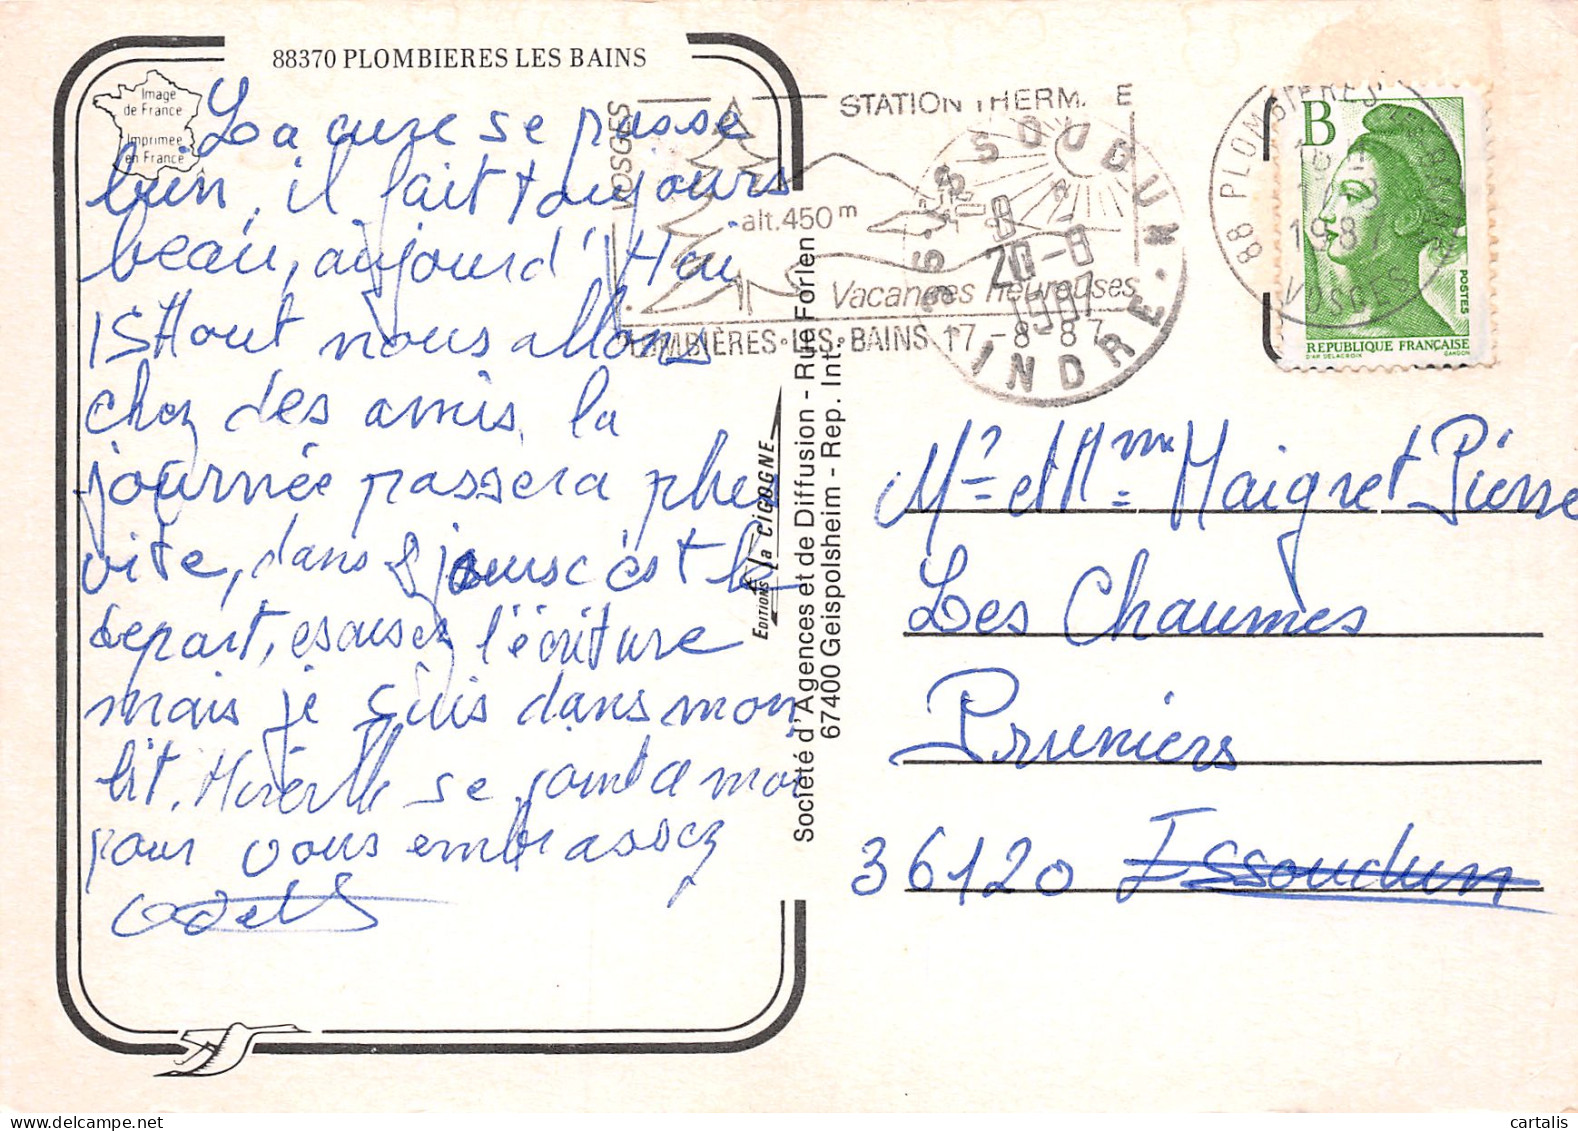 88370 PLOMBIERES LES BAINS
Image
de France
Imprimée
en France
La cure se passe
bien, il fait toujours
beau, aujourd'Hui
15 Hout nous allons
chez des amis, la
journée passera plus
vite, dans 8 jours c'est le
depart, escusez l'écriture
mais je suis dans mon
lit. Mireille se joint a moi
pour vous embrassez
VOSGES
STATION THERM E
alt. 450 m
Vacances heureuses
PLOMBIÈRES·LES·BAINS 17-8-87
ISSOUDUN
36
20-8
1987
INDRE
88 PLOMBIERES LES BAINS
1987
VOSGES
B
POSTES
REPUBLIQUE FRANÇAISE
D'AP. DELACROIX
GANDON
EDITIONS La CIGOGNE
Société d'Agences et de Diffusion - Rue Forlen
67400 Geispolsheim - Rep. Int.
Mr et Mme Maigret Pierre
Les Chaumes
Pruniers
36120 Issoudun
cartalis